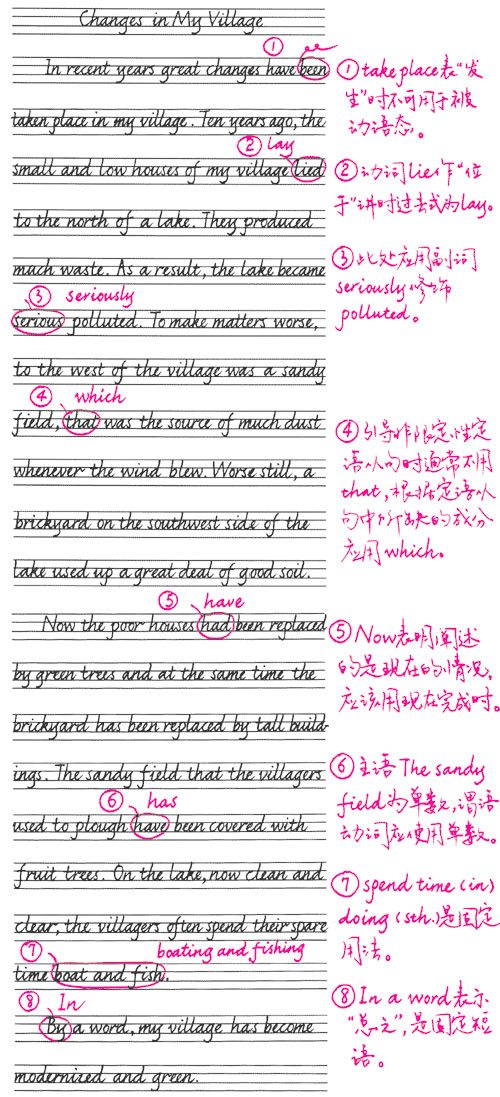 Changes in My Village
①
In recent years great changes have been
taken place in my village. Ten years ago, the
② lay
small and low houses of my village lied
to the north of a lake. They produced
much waste. As a result, the lake became
③ seriously
serious polluted. To make matters worse,
to the west of the village was a sandy
④ which
field, that was the source of much dust
whenever the wind blew. Worse still, a
brickyard on the southwest side of the
lake used up a great deal of good soil.
⑤ have
Now the poor houses had been replaced
by green trees and at the same time the
brickyard has been replaced by tall build-
ings. The sandy field that the villagers
⑥ has
used to plough have been covered with
fruit trees. On the lake, now clean and
clear, the villagers often spend their spare
⑦ boating and fishing
time boat and fish.
⑧ In
By a word, my village has become
modernized and green.
①take place表"发
生"时不可用于被
动语态。
②动词lie作"位
于"讲时过去式为lay。
③此处应用副词
seriously修饰
polluted。
④引导非限定性定
语从句时通常不用
that,根据定语从
句中所缺的成分
应用which。
⑤Now表明阐述
的是现在的情况,
应该用现在完成时。
⑥主语The sandy
field为单数,谓语
动词应使用单数。
⑦spend time (in)
doing (sth.)是固定
用法。
⑧In a word表示
"总之",是固定短
语。